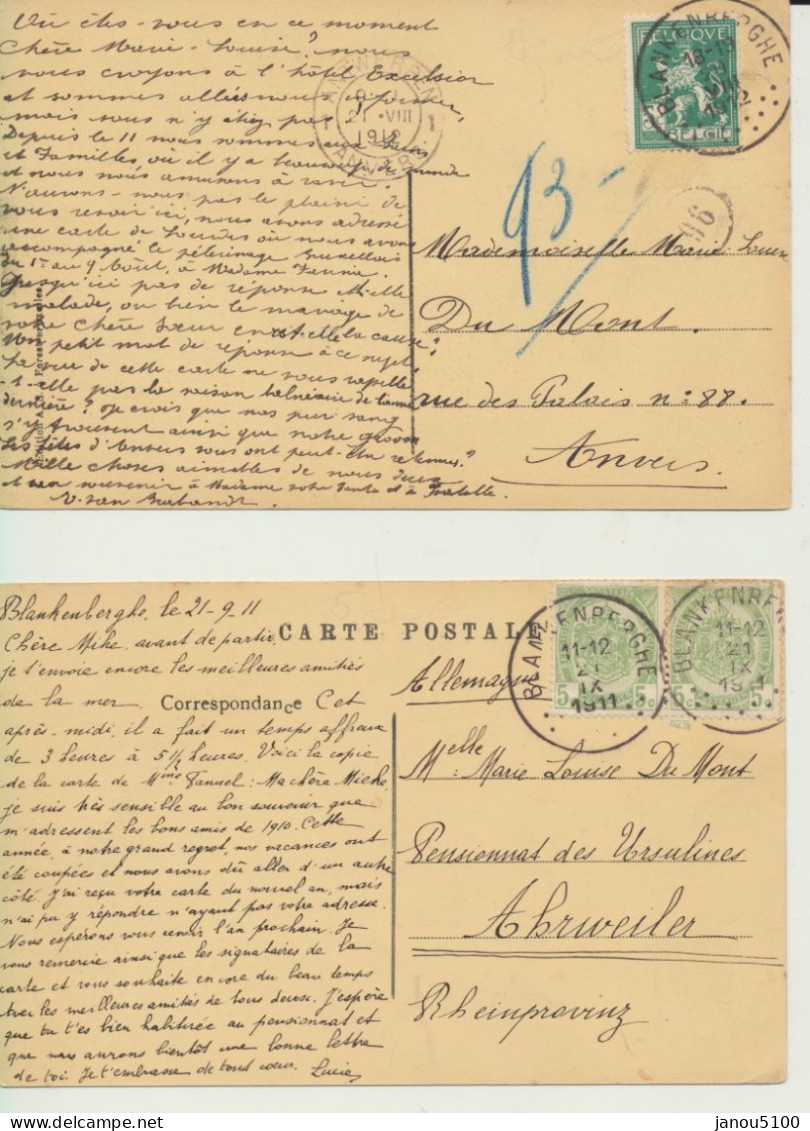 Où êtes-vous en ce moment
Chère Marie-Louise? nous
nous croyons à l'hôtel Excelsior
et sommes allées nous informer,
mais vous n'y étiez pas?
Depuis le 11 nous sommes aux Bains
et Familles, où il y a beaucoup de monde
et nous nous amusons à ravir.
N'aurons-nous pas le plaisir de
vous revoir ici, nous avons adressé
une carte de Lourdes où nous avons
accompagné le pélerinage Bruxellois
du 1er au 9 Août, à Madame
Jusqu'ici pas de réponse. M-elle
malade, ou bien le mariage de
votre chère sœur en est-elle la cause?
Un petit mot de réponse à ce sujet.
La vue de cette carte ne vous rappelle
-t-elle pas la saison balnéaire de l'année
dernière? Je crois que nos pur sang
s'y trouvent ainsi que notre groom
Les fêtes d'Anvers vous ont peut-être retenues?
Mille choses aimables de nous deux
et bon souvenir à Madame votre Tante et à
V. van Brabandt.
BELGIQUE
5
BELGIË
BLANKENBERGHE
18-19
VIII
1912
VIII
1912
1 1
93
96
Mademoiselle Marie-Louise
Du Mont.
rue des Palais n: 88.
Anvers.
Blankenberghe, le 21-9-11
Chère Mike, avant de partir,
je t'envoie encore les meilleures amitiés
de la mer. Cet
après-midi, il a fait un temps affreux
de 3 heures à 5 1/2 heures. Voici la copie
de la carte de Mme Fanuel: Ma chère Mieke,
je suis très sensible au bon souvenir que
m'adressent les bons amis de 1910. Cette
année, à notre grand regret, nos vacances ont
été coupées et nous avons dû aller d'un autre
côté. J'ai reçu votre carte du nouvel an, mais
n'ai pu y répondre n'ayant pas votre adresse.
Nous espérons vous revoir l'an prochain. Je
vous remercie ainsi que les signataires de la
carte et vous souhaite encore du beau temps
avec les meilleures amitiés de tous deux. J'espère
que tu t'es bien habituée au pensionnat et
que nous aurons bientôt une bonne lettre
de toi. Je t'embrasse de tout cœur. Lucie
CARTE POSTALE
Correspondance
BLANKENBERGHE
11-12
21
IX
1911
5c 5c
BLANKENBERGHE
11-12
21
IX
1911
5c 5c
Allemagne
Melle: Marie Louise Du Mont
Pensionnat des Ursulines
Ahrweiler
Rheinprovinz
janou5100